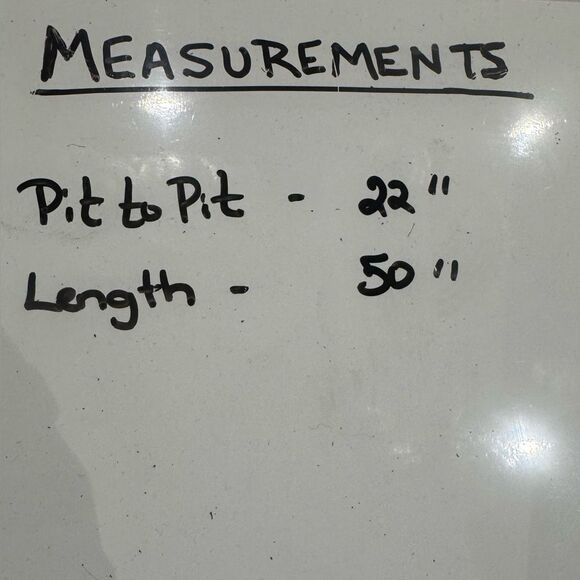 MEASUREMENTS
Pit to Pit - 22"
Length - 50"